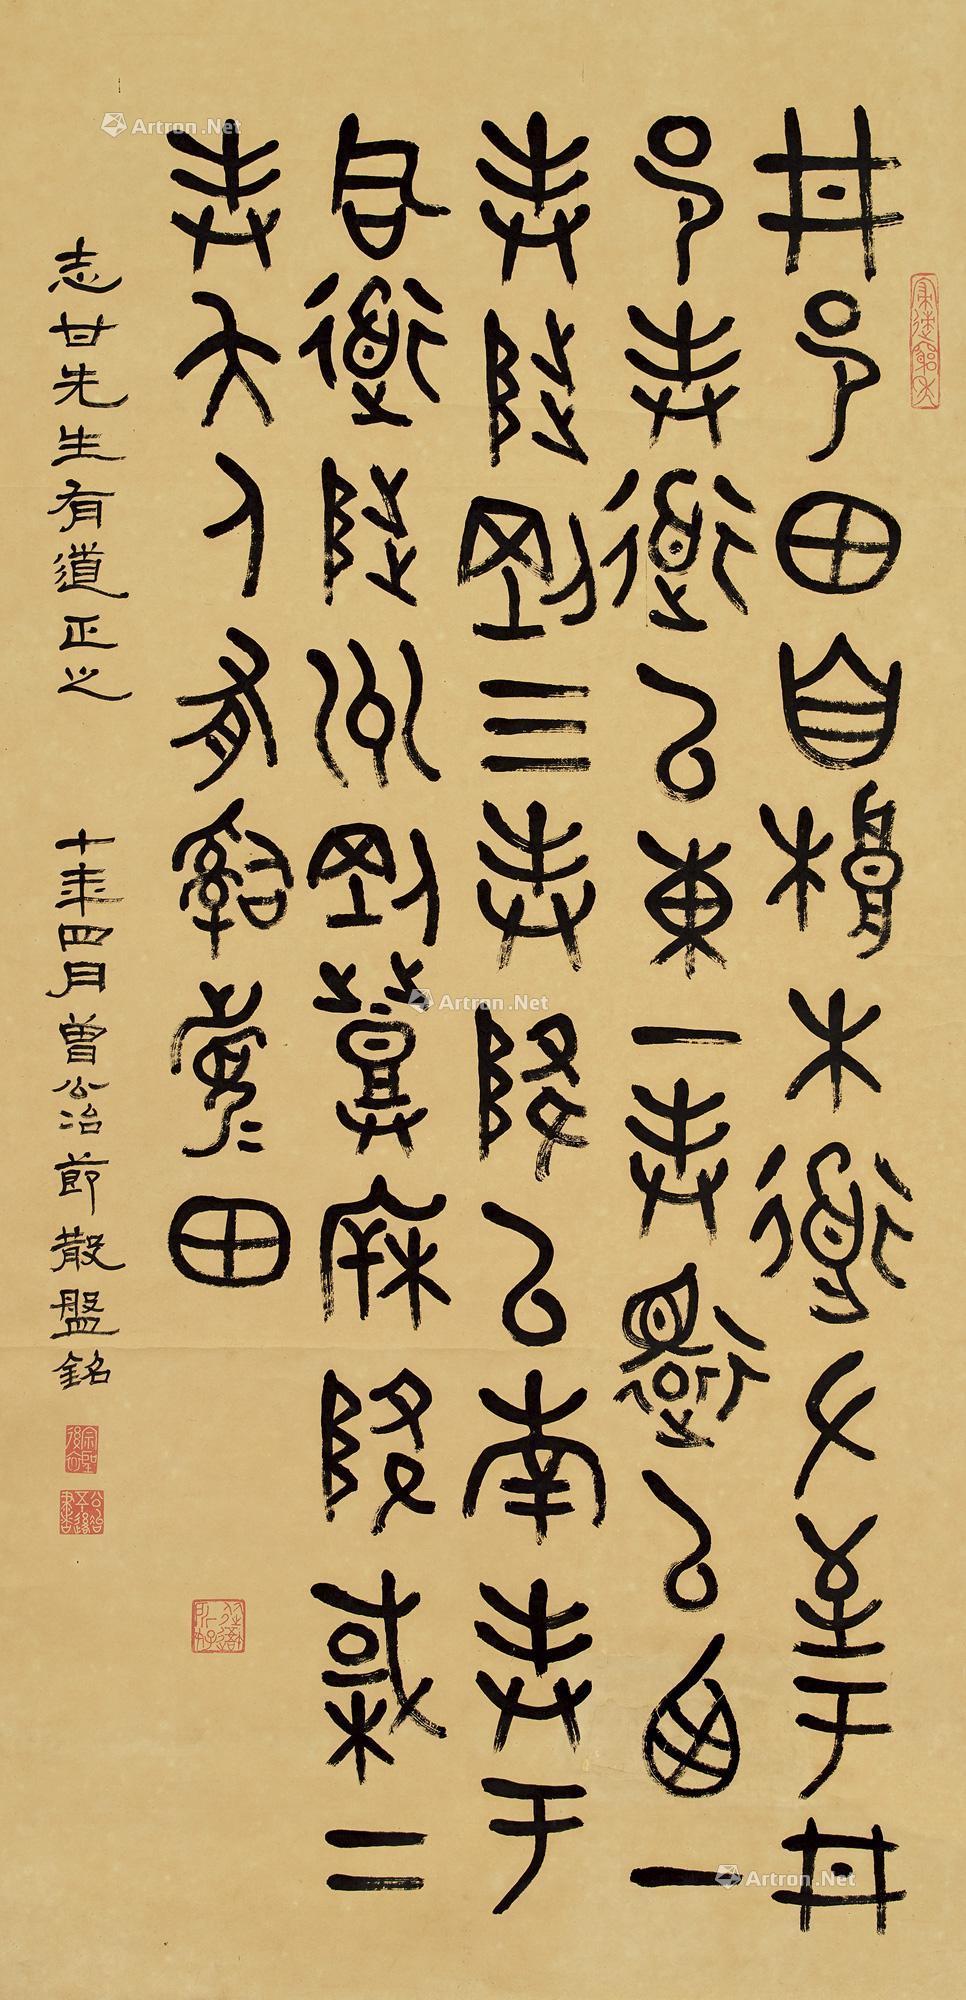 井邑田自桹木道左至于井
邑封道以東一封還以西一
封陟剛三封降以南封于
同道陟州剛登柝降棫二
封夨人有𤔲眉田
志甘先生有道正之 十年四月曾公冶節散盤銘
Artron.Net
Artron.Net
Artron.Net